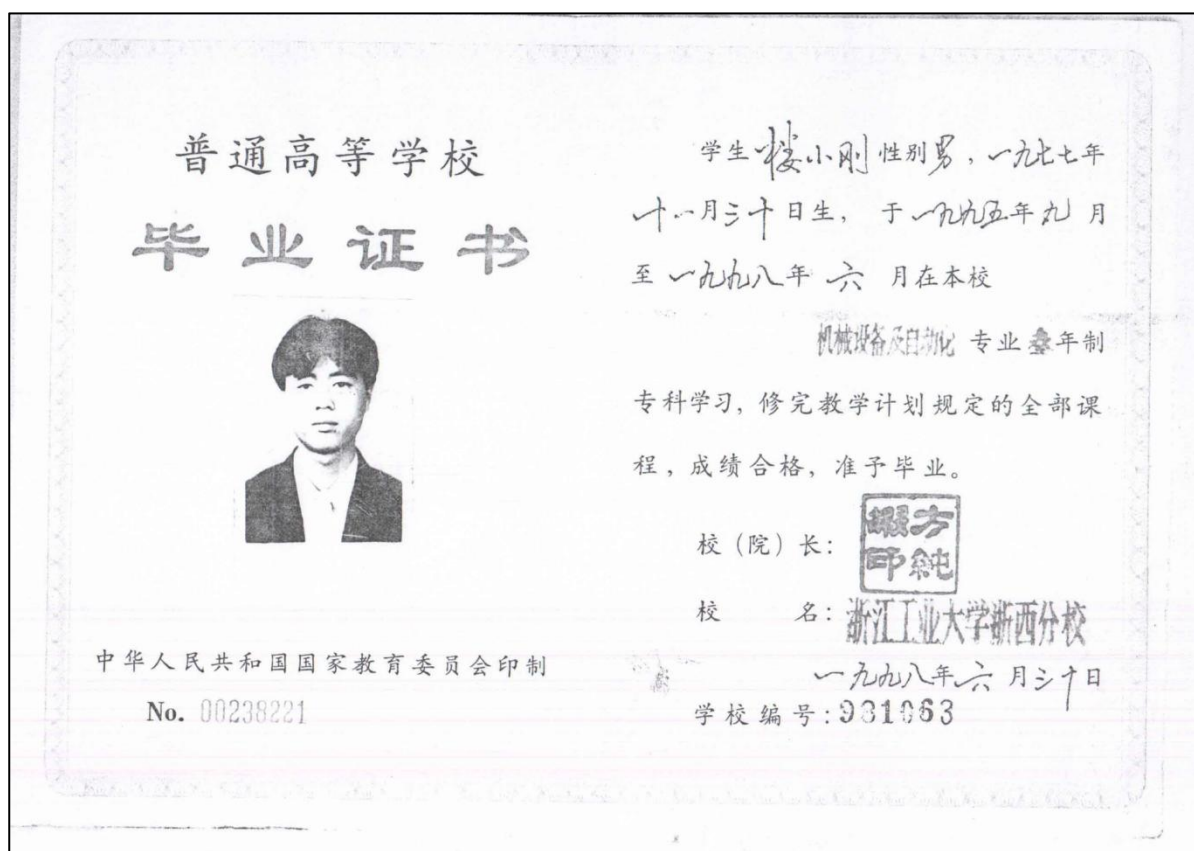 普通高等学校
毕业证书
中华人民共和国国家教育委员会印制
No. 00238221
学生楼小刚性别男，一九七七年
十一月三十日生，于一九九五年九月
至一九九八年六月在本校
机械设备及自动化专业叁年制
专科学习，修完教学计划规定的全部课
程，成绩合格，准予毕业。
校（院）长：
方純印
校名：浙江工业大学浙西分校
一九九八年六月三十日
学校编号：981063